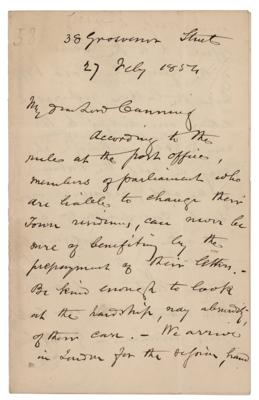 38 Grosvenor Street
27 Feby 1854
My dear Lord Canning
According to the
rules at the post office,
members of parliament who
are liable to change their
Town residence, can never be
sure of benefiting by the
prepayment of their letters. –
Be kind enough to look
at the hardship, nay absurdity,
of their case. – We arrive
in London for the session, hand